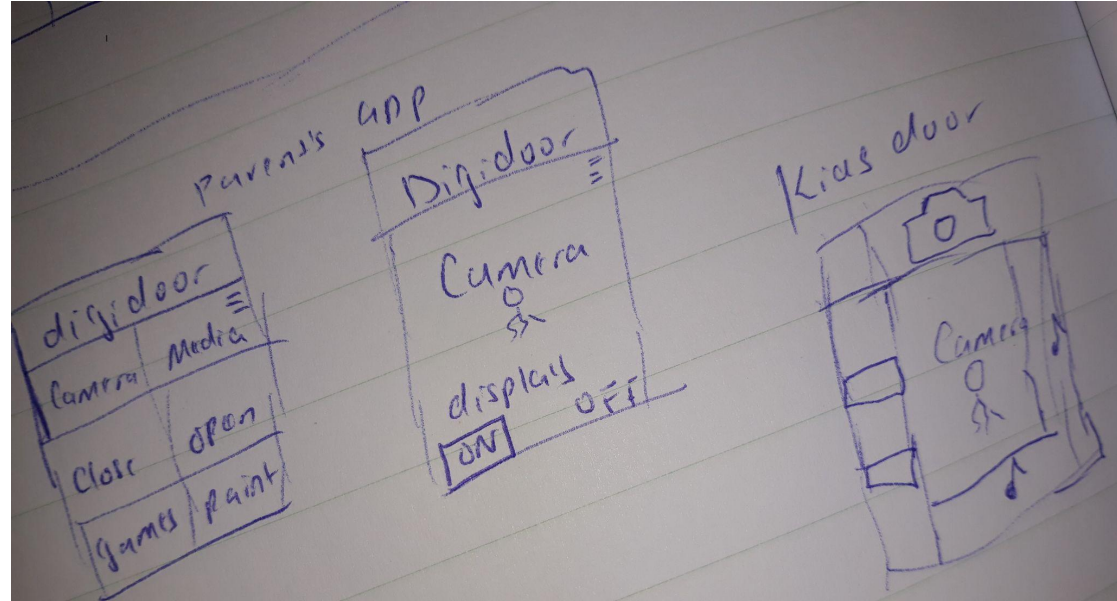 Parent's app
digidoor
Camera Media
Close open
games paint
Digidoor
Camera
displays
ON OFF
Kids door
Camera